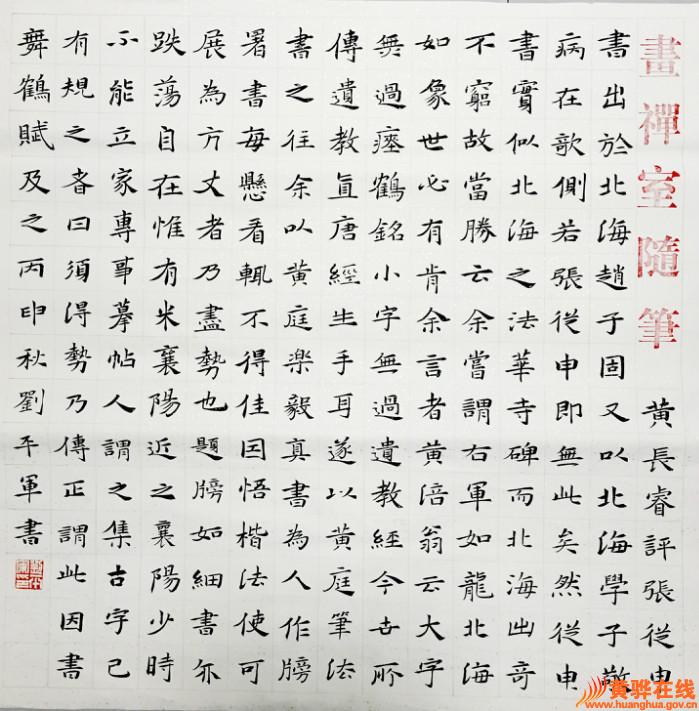 畫禪室隨筆
黃長睿評張從申
書出於北海趙子固又以北海學子敬
病在歌側若張從申即無此矣然從申
書實似北海之法華寺碑而北海出奇
不窮故當勝云余嘗謂右軍如龍北海
如象世必有肯余言者黃涪翁云大字
無過瘞鶴銘小字無過遺教經今世所
傳遺教直唐經生手耳遂以黃庭筆法
書之往余以黃庭樂毅真書為人作牓
署書每懸看輒不得佳因悟楷法使可
展為方丈者乃盡勢也題牓如細書亦
跌蕩自在惟有米襄陽近之襄陽少時
不能立家專事摹帖人謂之集古字已
有規之者曰須得勢乃傳正謂此因書
舞鶴賦及之丙申秋劉平軍書
黄骅在线
www.huanghua.gov.cn